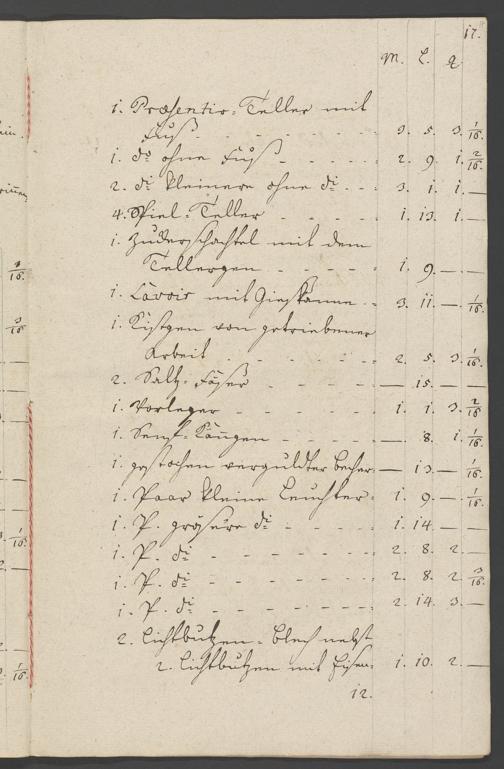 17.
M. L. q.
1. Præsentir-Teller mit
Fuß - - - - - - 3. 5. 3. 1/16.
1. do ohne Fuß - - - - 2. 9. 1. 2/16.
2. di kleinere ohne di - - 3. 1. 1. —
4. Spiel-Teller - - - - 1. 13. 1. —
1. Zuckerschachtel mit dem
Tellergen - - - - 1. 9. — —
1. Lavoir mit Gieskanne - - 3. 11. — 1/16.
1. Kistgen von getriebener
Arbeit - - - - - - 2. 5. 3. 1/16.
2. Saltz-Fäser - - - - — 15. — —
1. Vorleger - - - - - 1. 1. 3. 2/16.
1. Senf-Känngen - - - - — 8. 1. 1/16.
1. gestochen verguldter Becher — 13. — 1/16.
1. Paar kleine Leuchter - 1. 9. — 1/16.
1. P. grösere di - - - - 1. 14. — —
1. P. di - - - - - - 2. 8. 2. —
1. P. di - - - - - - 2. 8. 2. 3/16.
1. P. di - - - - - - 2. 14. 3. —
2. Lichtbutzen-Blech nebst
2. Lichtbutzen mit Eisen - 1. 10. 2. —
12.